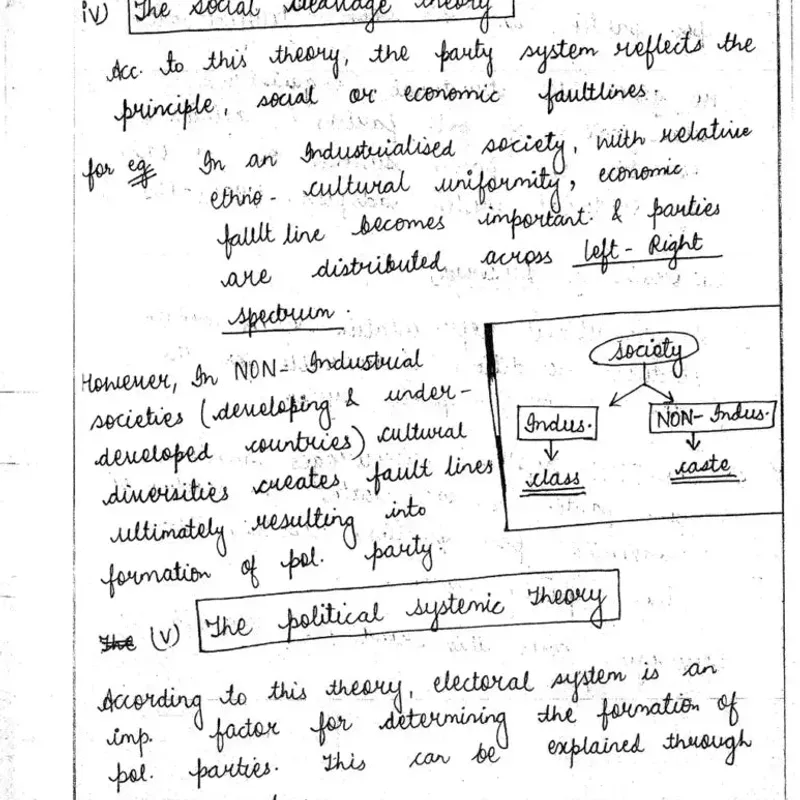 iv) The social cleavage theory
Acc. to this theory, the party system reflects the
principle, social or economic faultlines.
for eg In an Industrialised society, with relative
ethno-cultural uniformity, economic
fault line becomes important & parties
are distributed across left-Right
spectrum.
However, In NON-Industrial
societies (developing & under-
developed countries) cultural
diversities creates fault lines
ultimately resulting into
formation of pol. party.
society
Indus. NON-Indus.
class caste
The (v) The political systemic Theory
According to this theory, electoral system is an
imp. factor for determining the formation of
pol. parties. This can be explained through